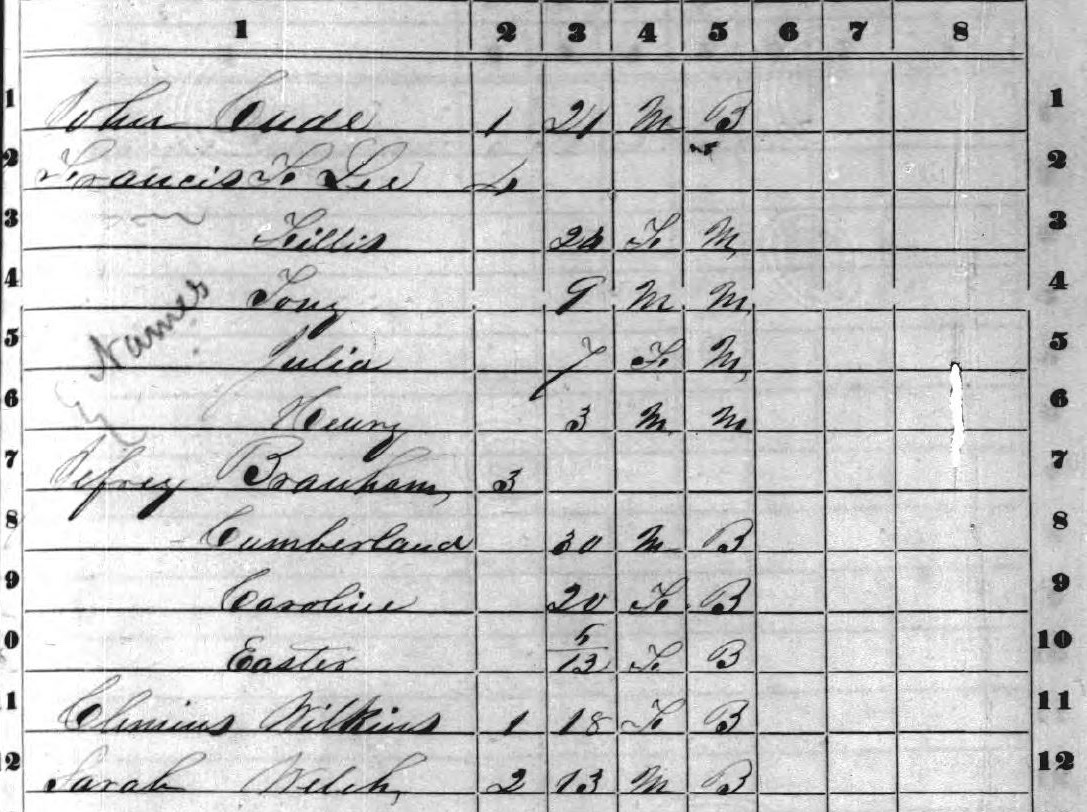 1 2 3 4 5 6 7 8
1 John Cude 1 21 M B 1
2 Francis F Lee 4 2
3 Fillis 26 F M 3
4 Tony 9 M M 4
Names
5 Julia 7 F M 5
6 Henry 3 M M 6
7 Jefrey Branham 3 7
8 Cumberland 30 M B 8
9 Caroline 20 F B 9
0 Easter 5/13 F B 10
1 Clemins Wilkins 1 18 F B 11
2 Sarah Welch 2 13 M B 12